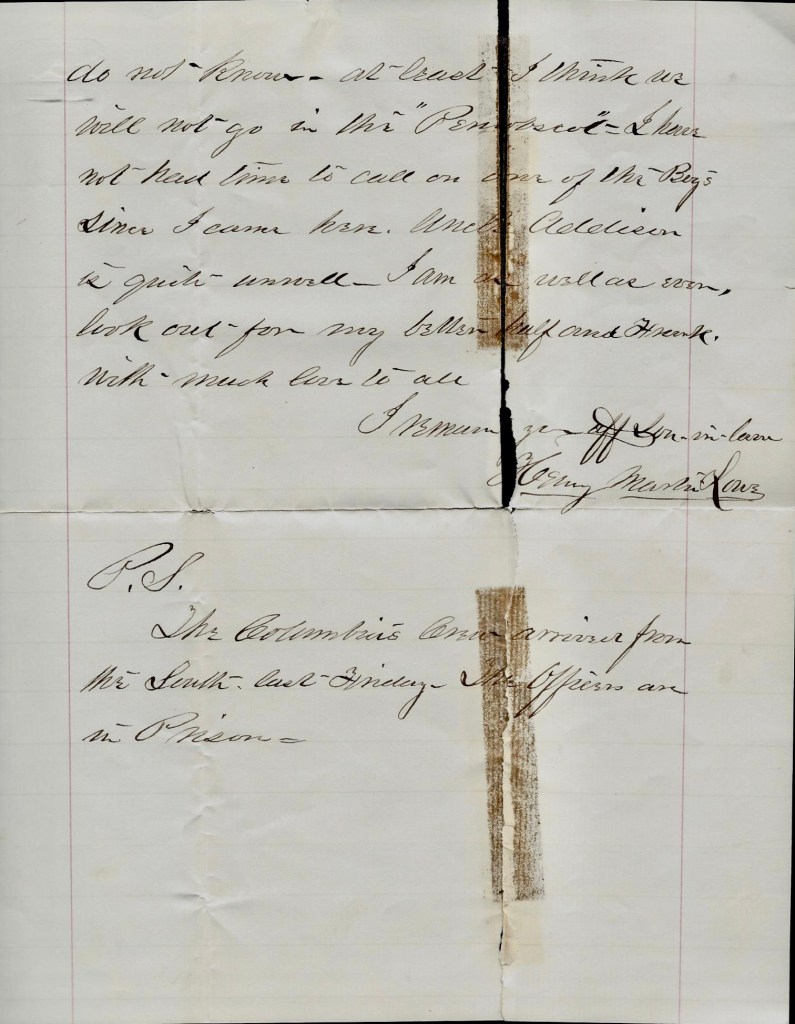 do not know – at least I think we
will not go in the "Penobscot" = I have
not had time to call on one of the Boys
since I came here. Uncle Addison
is quite unwell – I am as well as ever,
look out for my better half and Frank.
With much love to all
I remain yr aff Son-in-law
Henry Martin Lowe
P.S.
The Columbia's Crew arrived from
the South last Friday – The Officers are
in Prison =